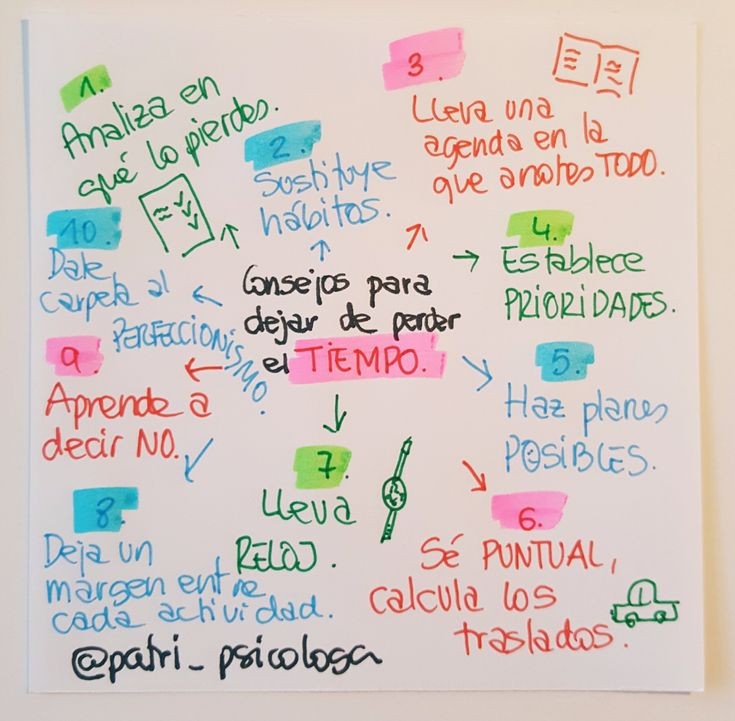 Consejos para
dejar de perder
el TIEMPO.
1.
Analiza en
qué lo pierdes.
2.
Sustituye
hábitos.
3.
Lleva una
agenda en la
que anotes TODO.
4.
Establece
PRIORIDADES.
5.
Haz planes
POSIBLES.
6.
Sé PUNTUAL,
calcula los
traslados.
7.
Lleva
RELOJ.
8.
Deja un
margen entre
cada actividad.
9
Aprende a
decir NO.
10.
Dale
carpeta al
PERFECCIONISMO.
@patri_psicologa